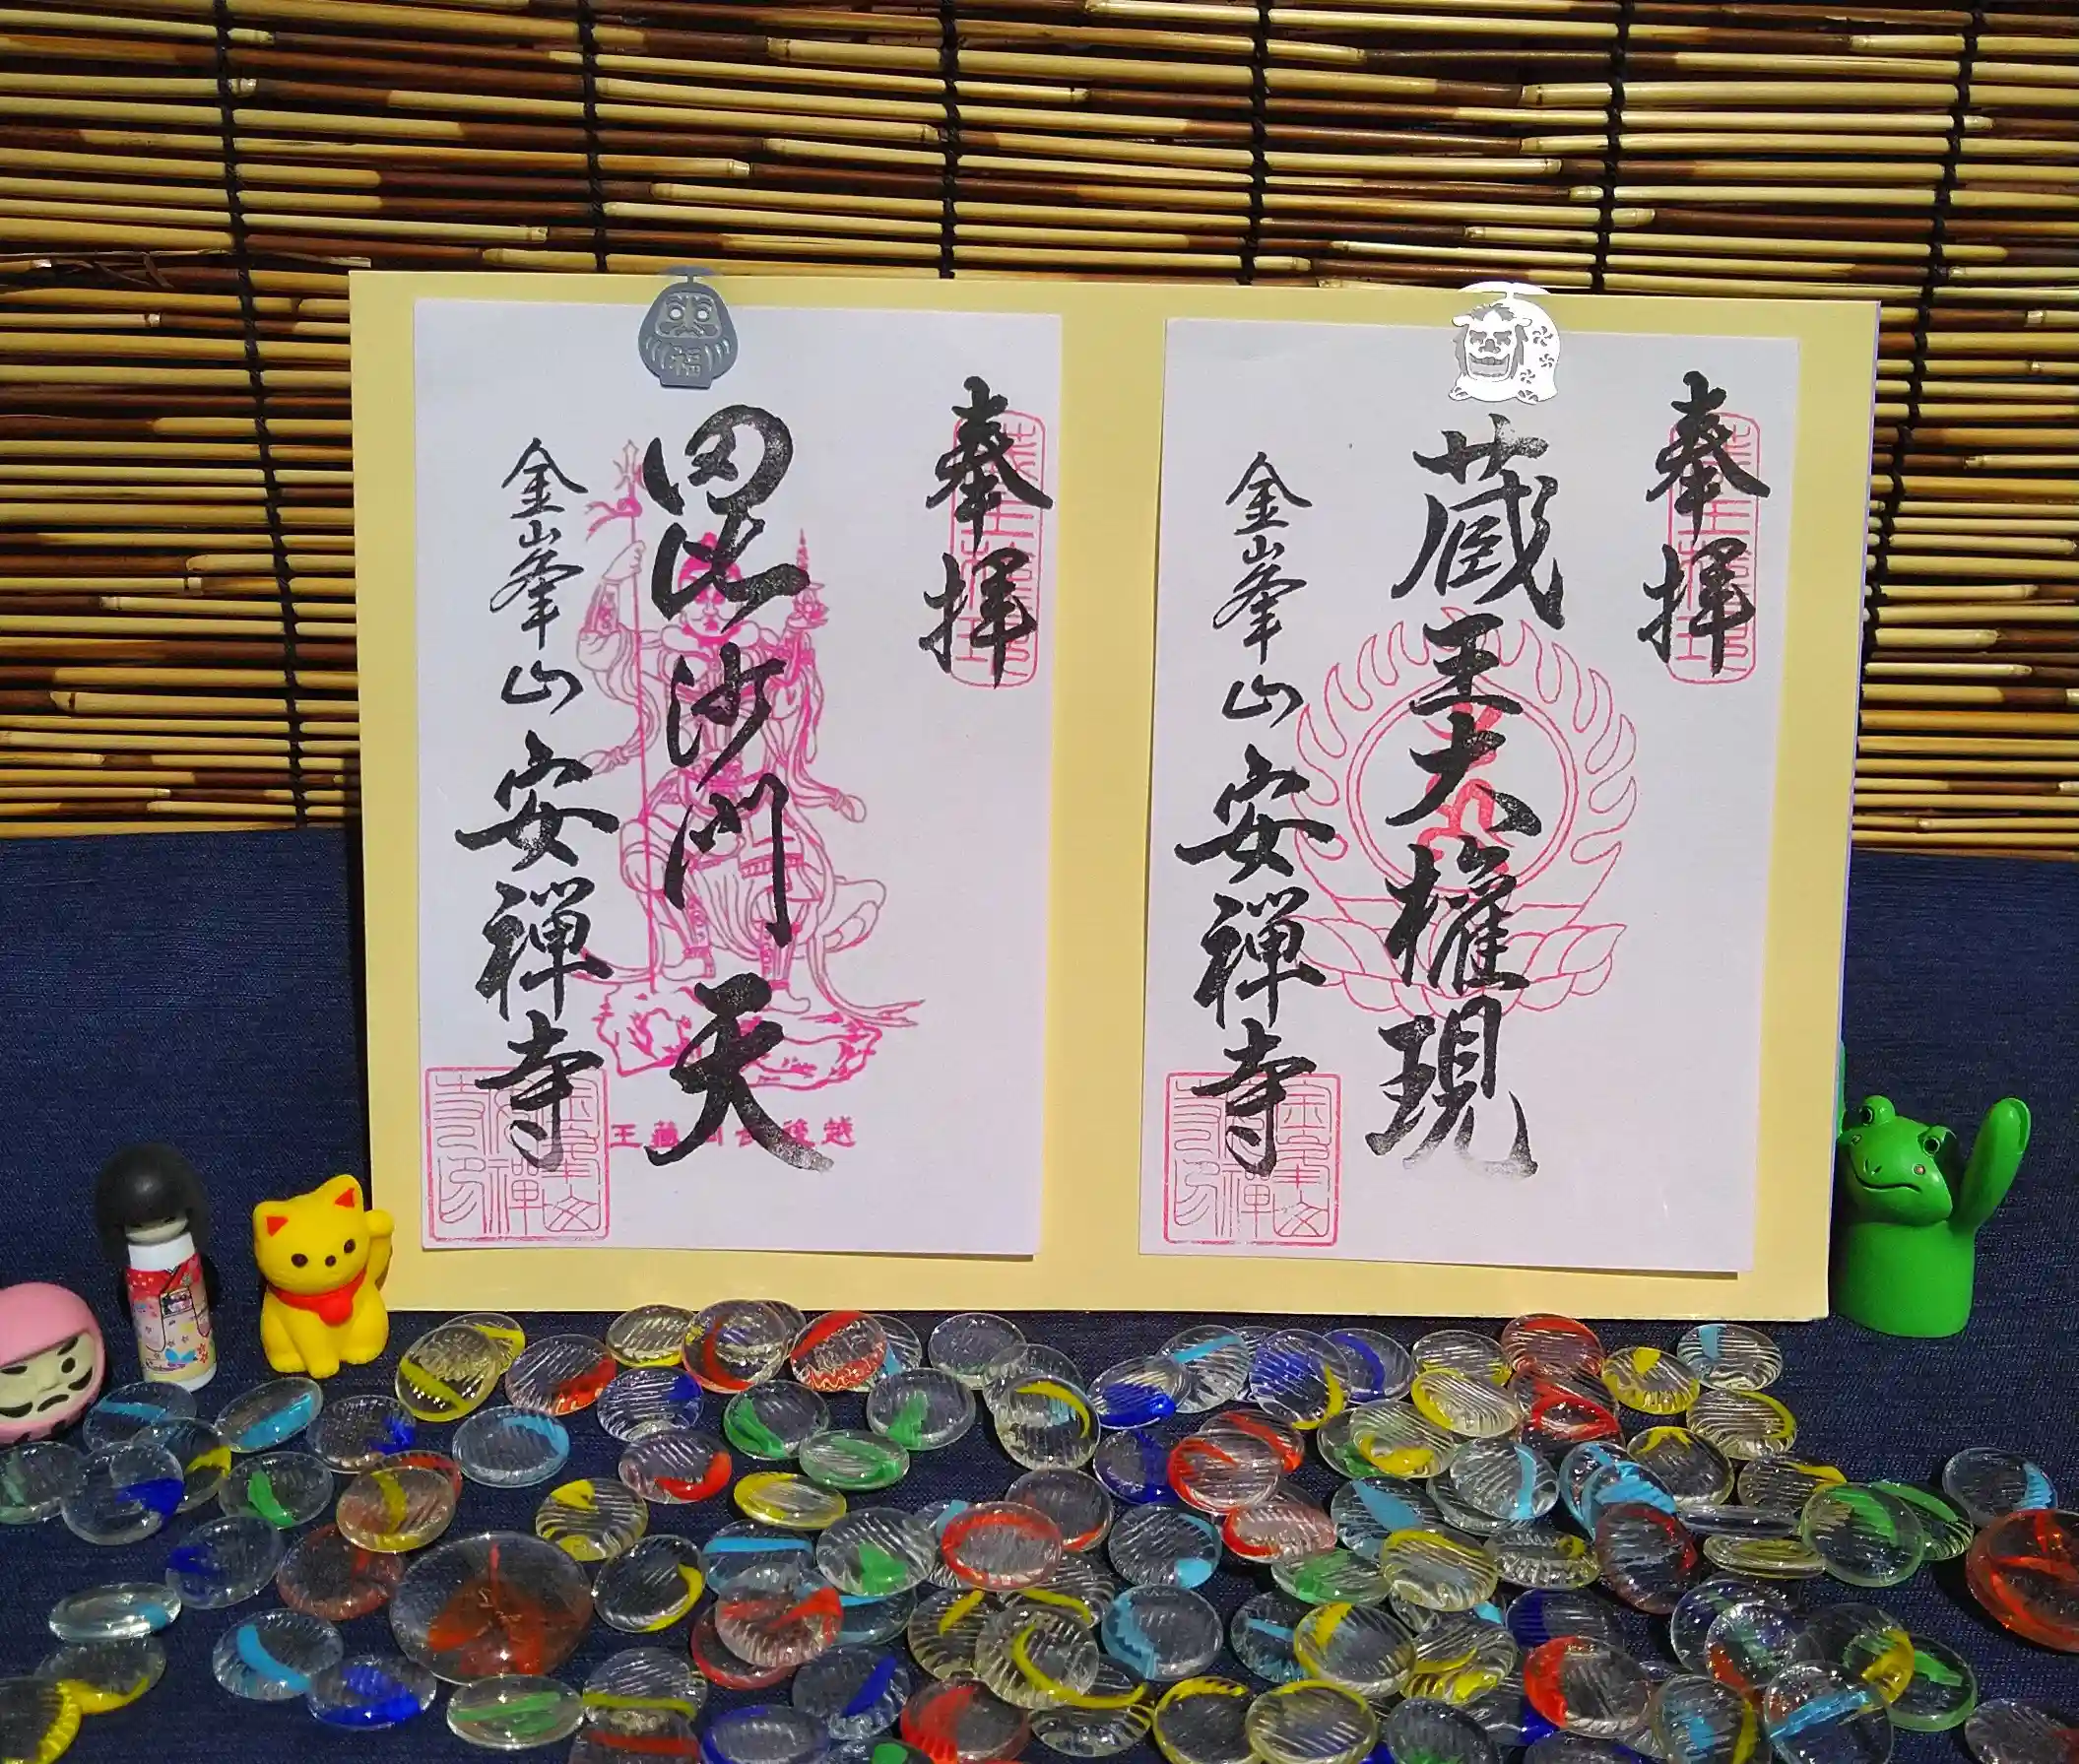 奉拝
蔵王大権現
金峯山
安禅寺
奉拝
毘沙門天
金峯山
安禅寺
福